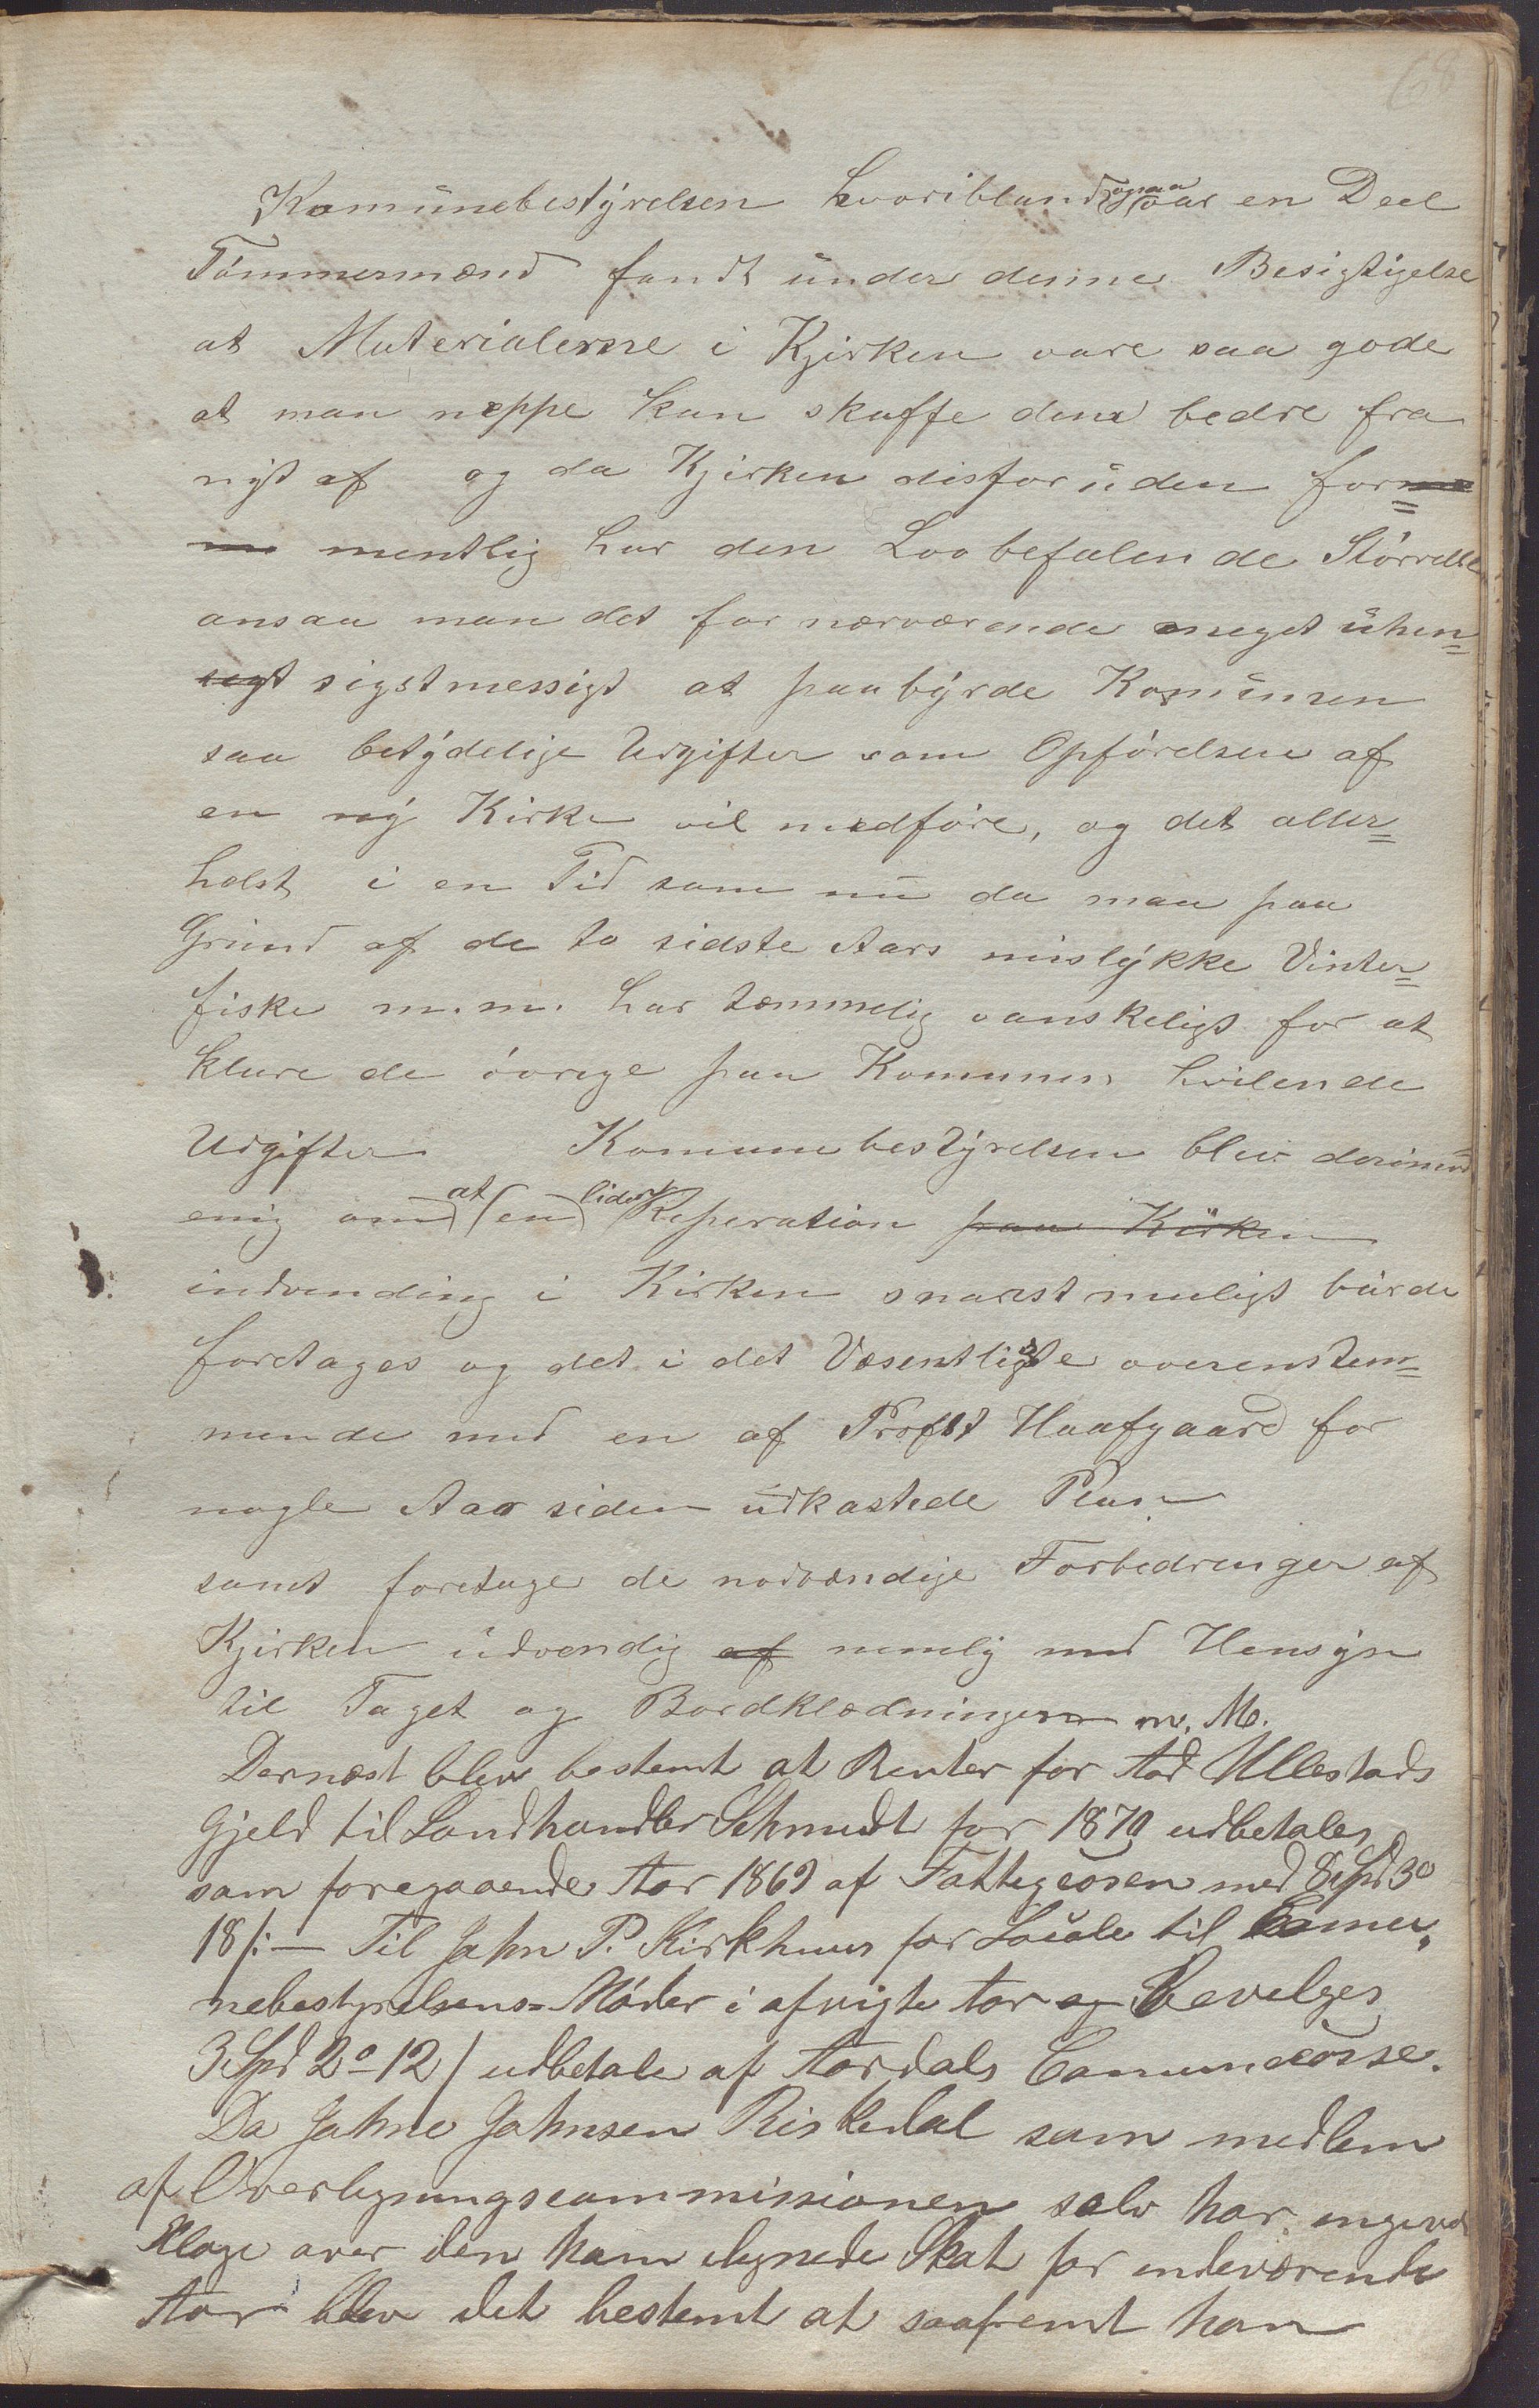 68
Komunebestÿrelsen hvoriblandt ogsaa var en Deel
Tömmermænd fandt under denne Besigtigelse
at Materialerne i Kjirken vare saa gode
at man neppe kan skaffe dem bedre fra
nyt af og da Kjirken disforuden for=
mentlig har den Lovbefalende Störrelse
ansaa man det for nærværende meget uhen=
sigt sigstmessigt at paabÿrde Komunen
saa betÿdelige Udgifter som Opförelsen af
en nÿ Kirke vil medföre, og det aller=
helst i en Tid som nu da man paa
Grund af de to sidste Aars mislÿkke Vinter=
fiske m.m. har temmelig vanskeligt for at
klare de övrege paa Komunen hvilende
Udgifter Komunebestÿrelsen blev derimod
enig om at en liden Reperation paa Kirken
indvending i Kirken snarest muligt burde
foretages og det i det Væsentligste overenstem=
mende med en af Profst Haafgaard for
nogle Aar siden udkastede Plan
samt foretage de nødvændige Forbedringer af
Kjirken udvendig af nemlig med Hensÿn
til Taget og Bordklædningen m. M.
Dernæst blev bestemt at Renter for Aad Ullestads
Gjeld til Landhandler Schmidt for 1870 udbetales
som foregaaende Aar 1869 af Fattigcassen med 8 Spd 3o
18 /:— Til Jahn P. Kirkhuus for Locale til Comu„
nebestyrelsens=Möder i afvigte Aar og Bevelges
3 Spd 2o-12/ udbetale af Aardals Comunecasse.
Da Jahne Jahnsen Riskedal som medlem
af Overligningscommissionen selv har ingivet
Klage over den ham ilignede Skat for indeværende
Aar blev det bestemt at saafremt han